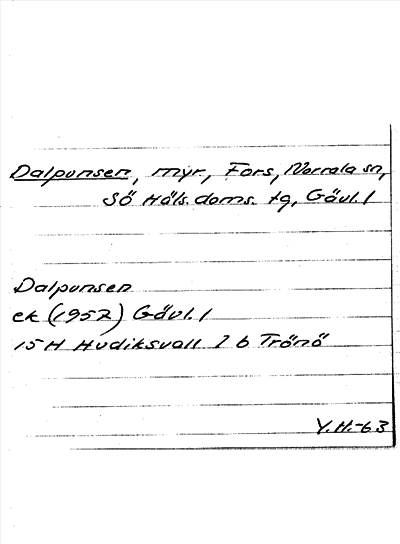 Dalpunsen, myr, Fors, Norrala sn,
Sö Häls. doms. tg, Gävl. l
Dalpunsen
ek (1957) Gävl. l
15H Hudiksvall 2 b Trönö
Y.H.-63